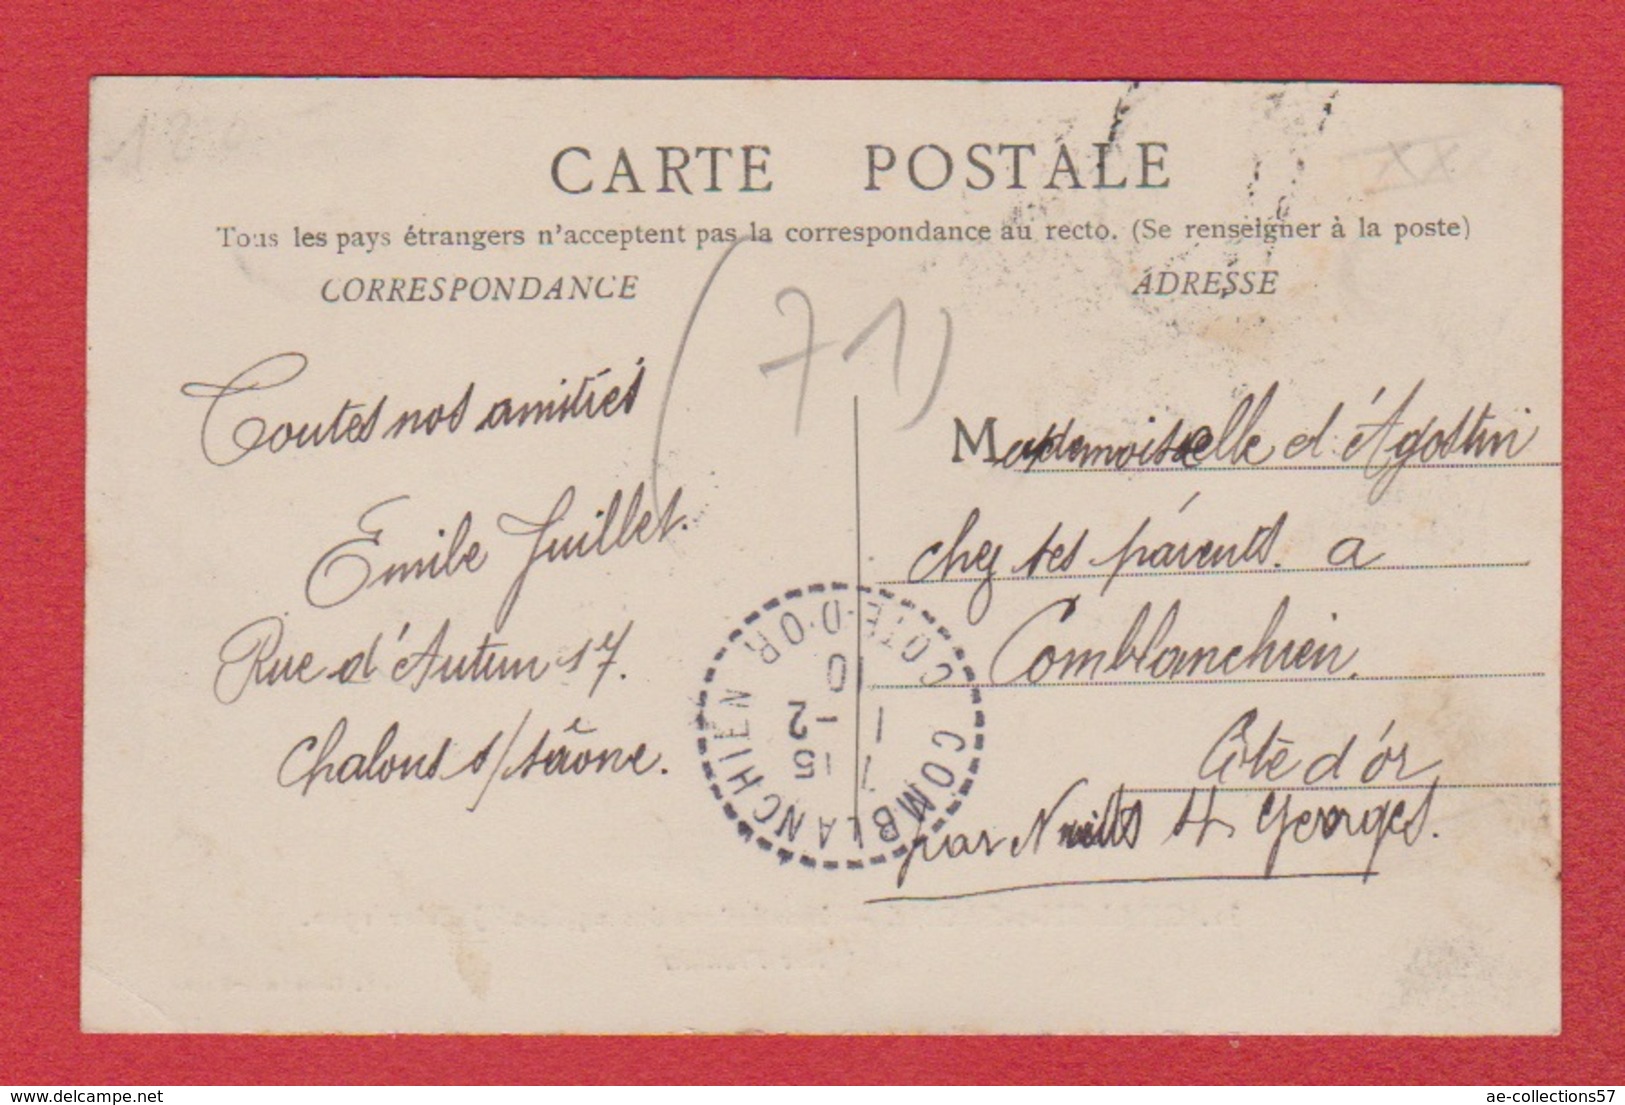 CARTE POSTALE
Tous les pays étrangers n'acceptent pas la correspondance au recto. (Se renseigner à la poste)
CORRESPONDANCE
ADRESSE
(71)
Toutes nos amitiés
Emile Juillet.
Rue d'Autun 17.
Chalons s/saône.
Mademoiselle d'Agostin
chez ses parents. a
Comblanchien.
Côte d'or
par Nuits St Georges.
COMBLANCHIEN
COTE-D'OR
15 -2
10
www.delcampe.net
ae-collections57